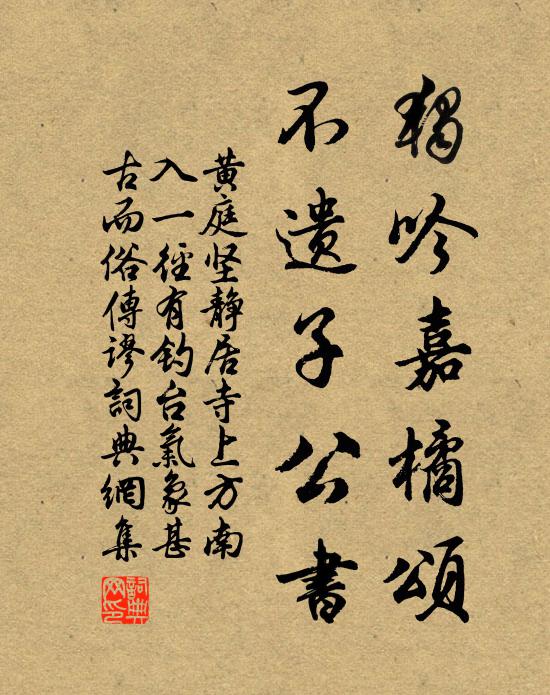 獨吟嘉橘頌
不遺子公書
黄庭坚静居寺上方南
入一徑有钓台氣象甚
古而俗傳謬詞典網集
詞典网印